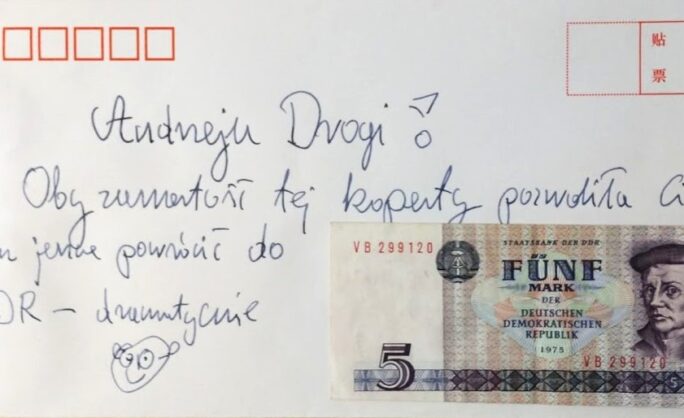 贴
票
Andrzeju Drogi!
Oby zawartość tej koperty pozwoliła Ci
powrócić do
DR – dramatycznie
VB 299120
STAATSBANK DER DDR
FÜNF
MARK
DER
DEUTSCHEN
DEMOKRATISCHEN
REPUBLIK
1975
VB 299120
5
5